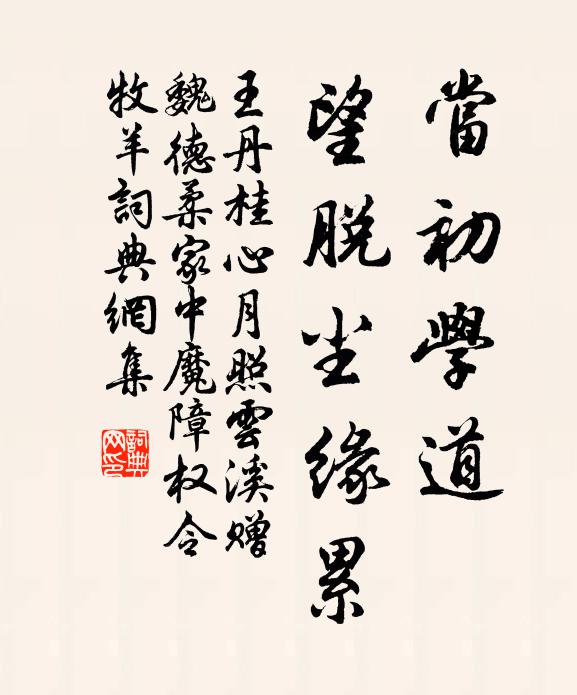 當初學道
望脱尘缘累
王丹桂心月照雲溪赠
魏德柔家中魔障权令
牧羊詞典網集
詞典
网印